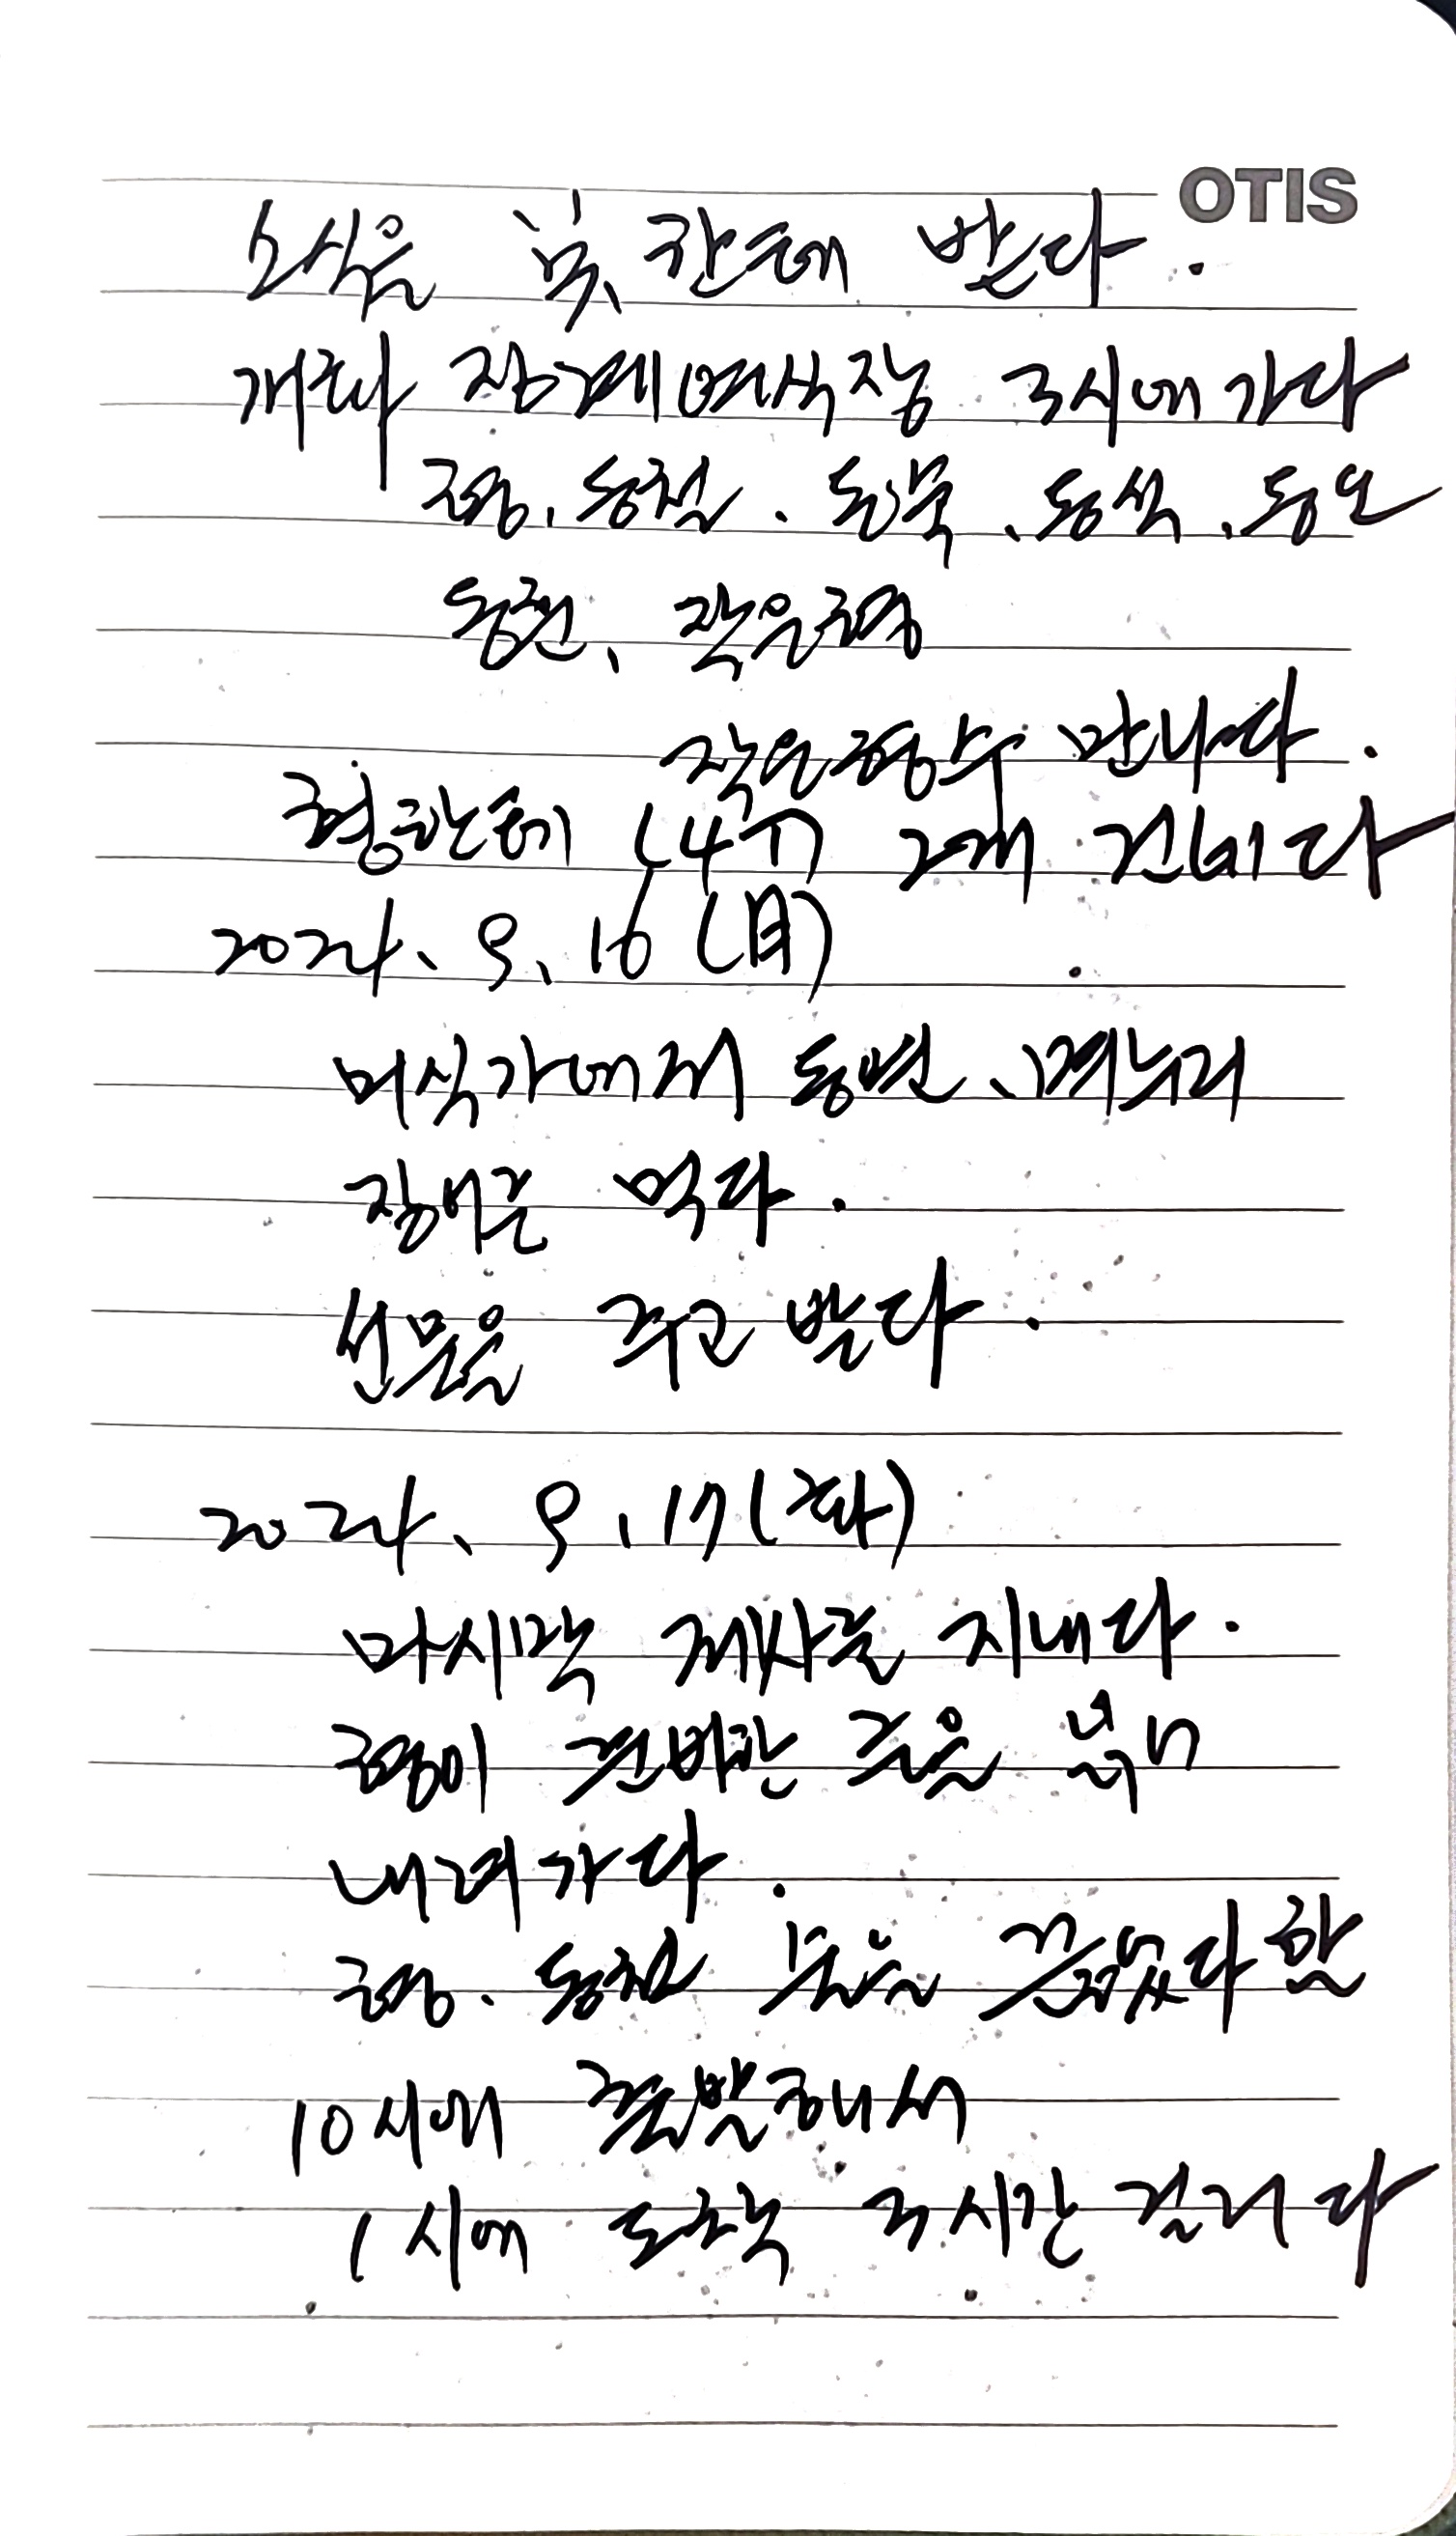 OTIS
소식을 밧한테 받다.
개화 장례예식장 3시에 가다
형, 동철. 동욱, 동석, 동오
동현, 작은형
작은형수 만나다.
형한테 (4T) 2개 건네다
2024. 9. 16 (月)
미식가에서 동현, 며누리
장어를 먹다.
선물을 주고 받다.
2024. 9. 17 (화)
마지막 제사를 지내다.
형이 준비한 술을
내려가다.
형. 동철 다 함
10시에 출발해서
1시에 도착 3시간 걸리다